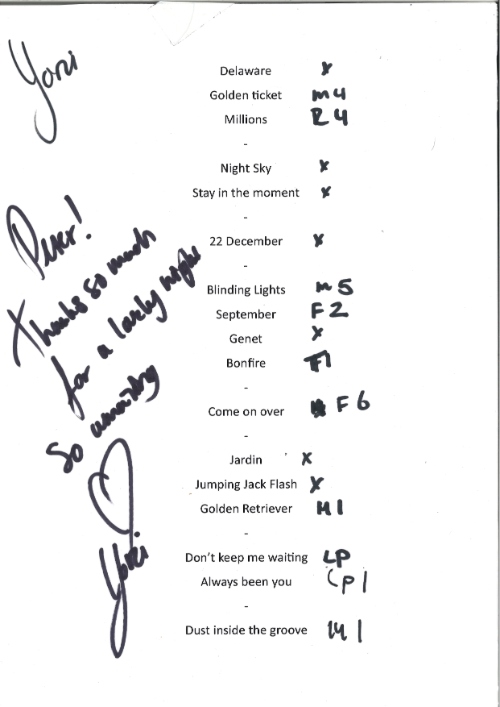 Yori
Delaware x
Golden ticket M4
Millions R4
-
Night Sky x
Stay in the moment x
-
22 December x
-
Blinding Lights M5
September F2
Genet x
Bonfire F1
-
Come on over F6
-
Jardin x
Jumping Jack Flash x
Golden Retriever M1
-
Don't keep me waiting LP
Always been you CP1
-
Dust inside the groove M1
Thanks so much
for a lovely night
so amazing
Yori